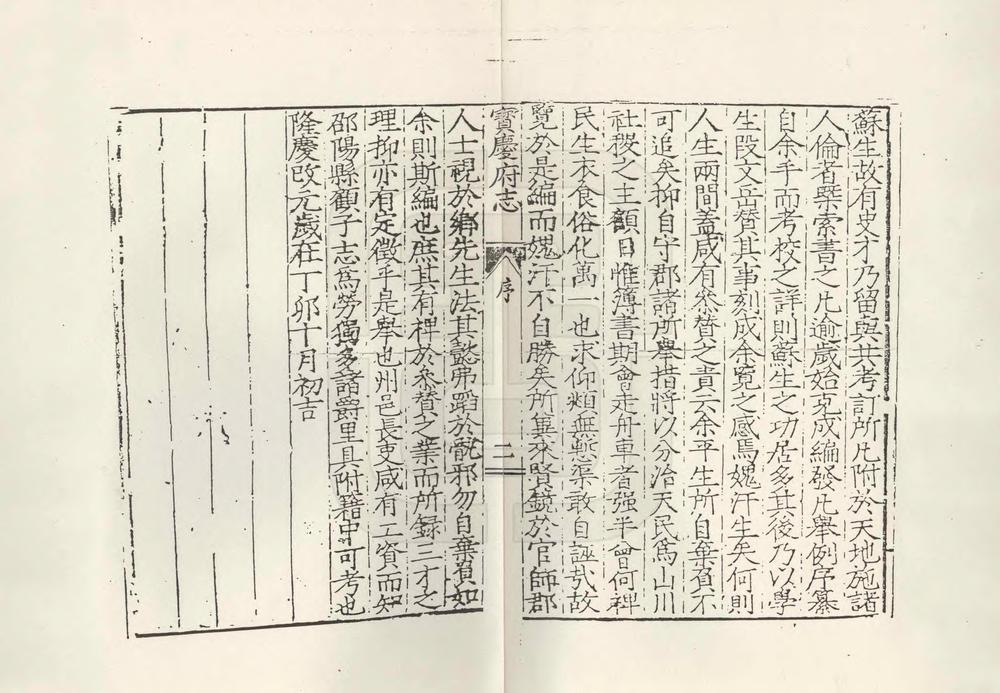 蘇生故有史才乃留與共考訂所凡附於天地施諸
人倫者槩索書之凡逾歲始克成編發凡舉例序纂
自余手而考校之詳則蘇生之功居多其後乃以學
生段文岳賛其事刻成余覽之感焉媿汗生矣何則
人生兩間蓋咸有叅賛之責云余平生所自棄負不
可追矣抑自守郡諸所舉措將以分治天民爲山川
社稷之主顧日惟簿書期會走舟車者强半會何裨
民生衣食俗化萬一也求仰頫無慙渠敢自誣哉故
覽於是編而媿汗不自勝矣所兾來賢鏡於官師郡
寳慶府志
序
二
人士視於鄉先生法其懿弗蹈於骫邪勿自棄負如
余則斯編也庶其有裨於叅賛之業而所録三才之
理抑亦有定徵乎是舉也州邑長吏咸有工資而知
邵陽縣顧子志爲勞獨多諸爵里具附籍中可考也
隆慶改元歲在丁卯十月初吉